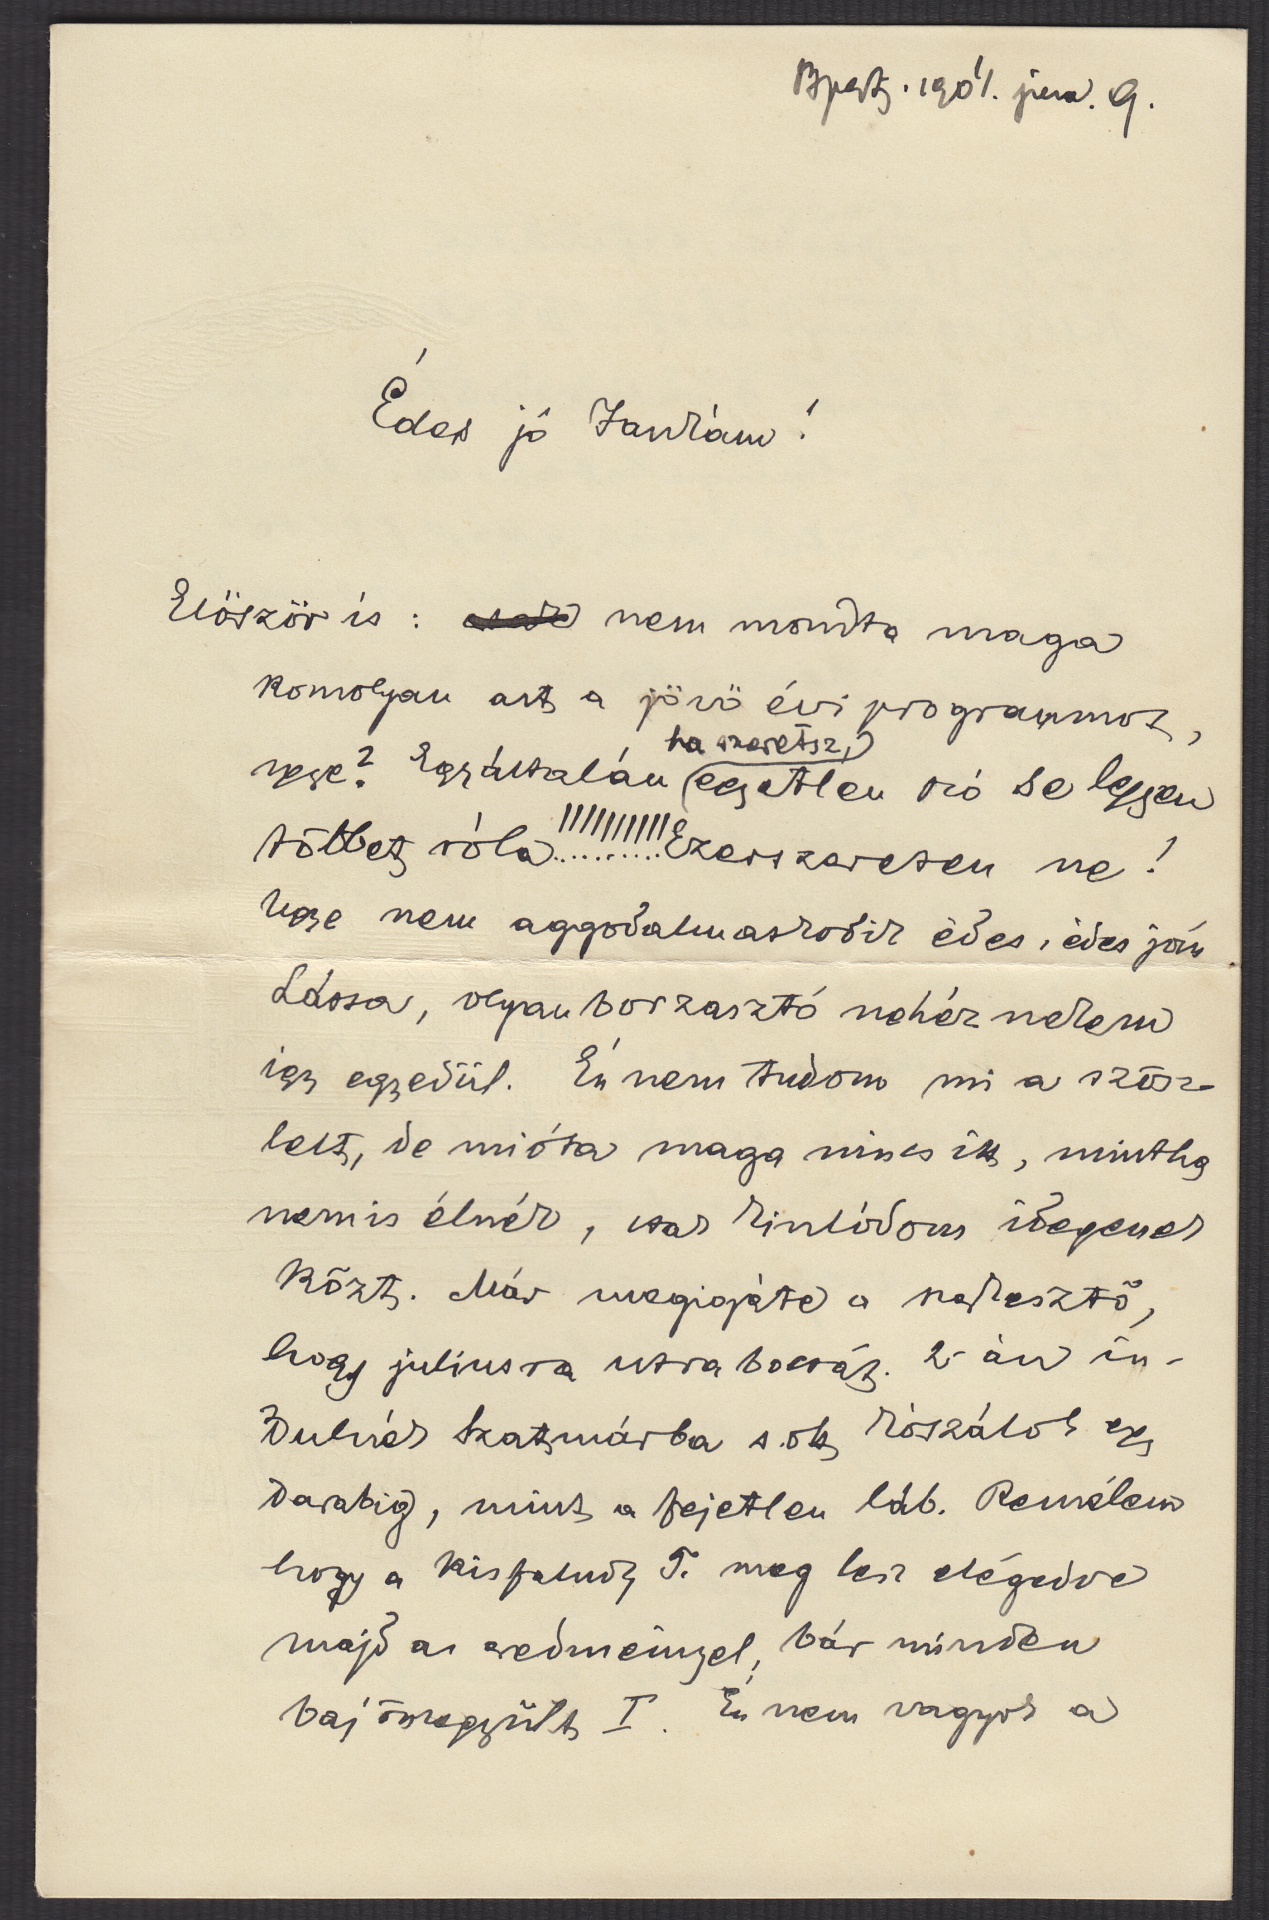 Bpest. 1901. jun. 9.
Édes jó Jankám!
Elöször is : nem mondta maga
komolyan azt a jövö évi programmot,
ugye? Egyáltalán (ha szeretsz,)
egyetlen szó se legyen
többet róla..........!!!!!!!!!! Ezerszeresen ne!
Ugye nem aggodalmaskodik édes, édes jóm
Lássa, olyan borzasztó nehéz nekem
igy egyedül. Én nem tudom mi a szösz
lelt, de mióta maga nincs itt, mintha
nem is élnék, csak kinlódom idegenek
közt. Már megigérte a
hogy juliusra utra bocsát. 2-án in-
dulnék Szatmárba s ott kószálok egy
darabig, mint a fejetlen láb. Remélem
hogy a Kisfaludy T. meg lesz elégedve
majd az eredménnyel, bár minden
baj összegyült I. Én nem vagyok a